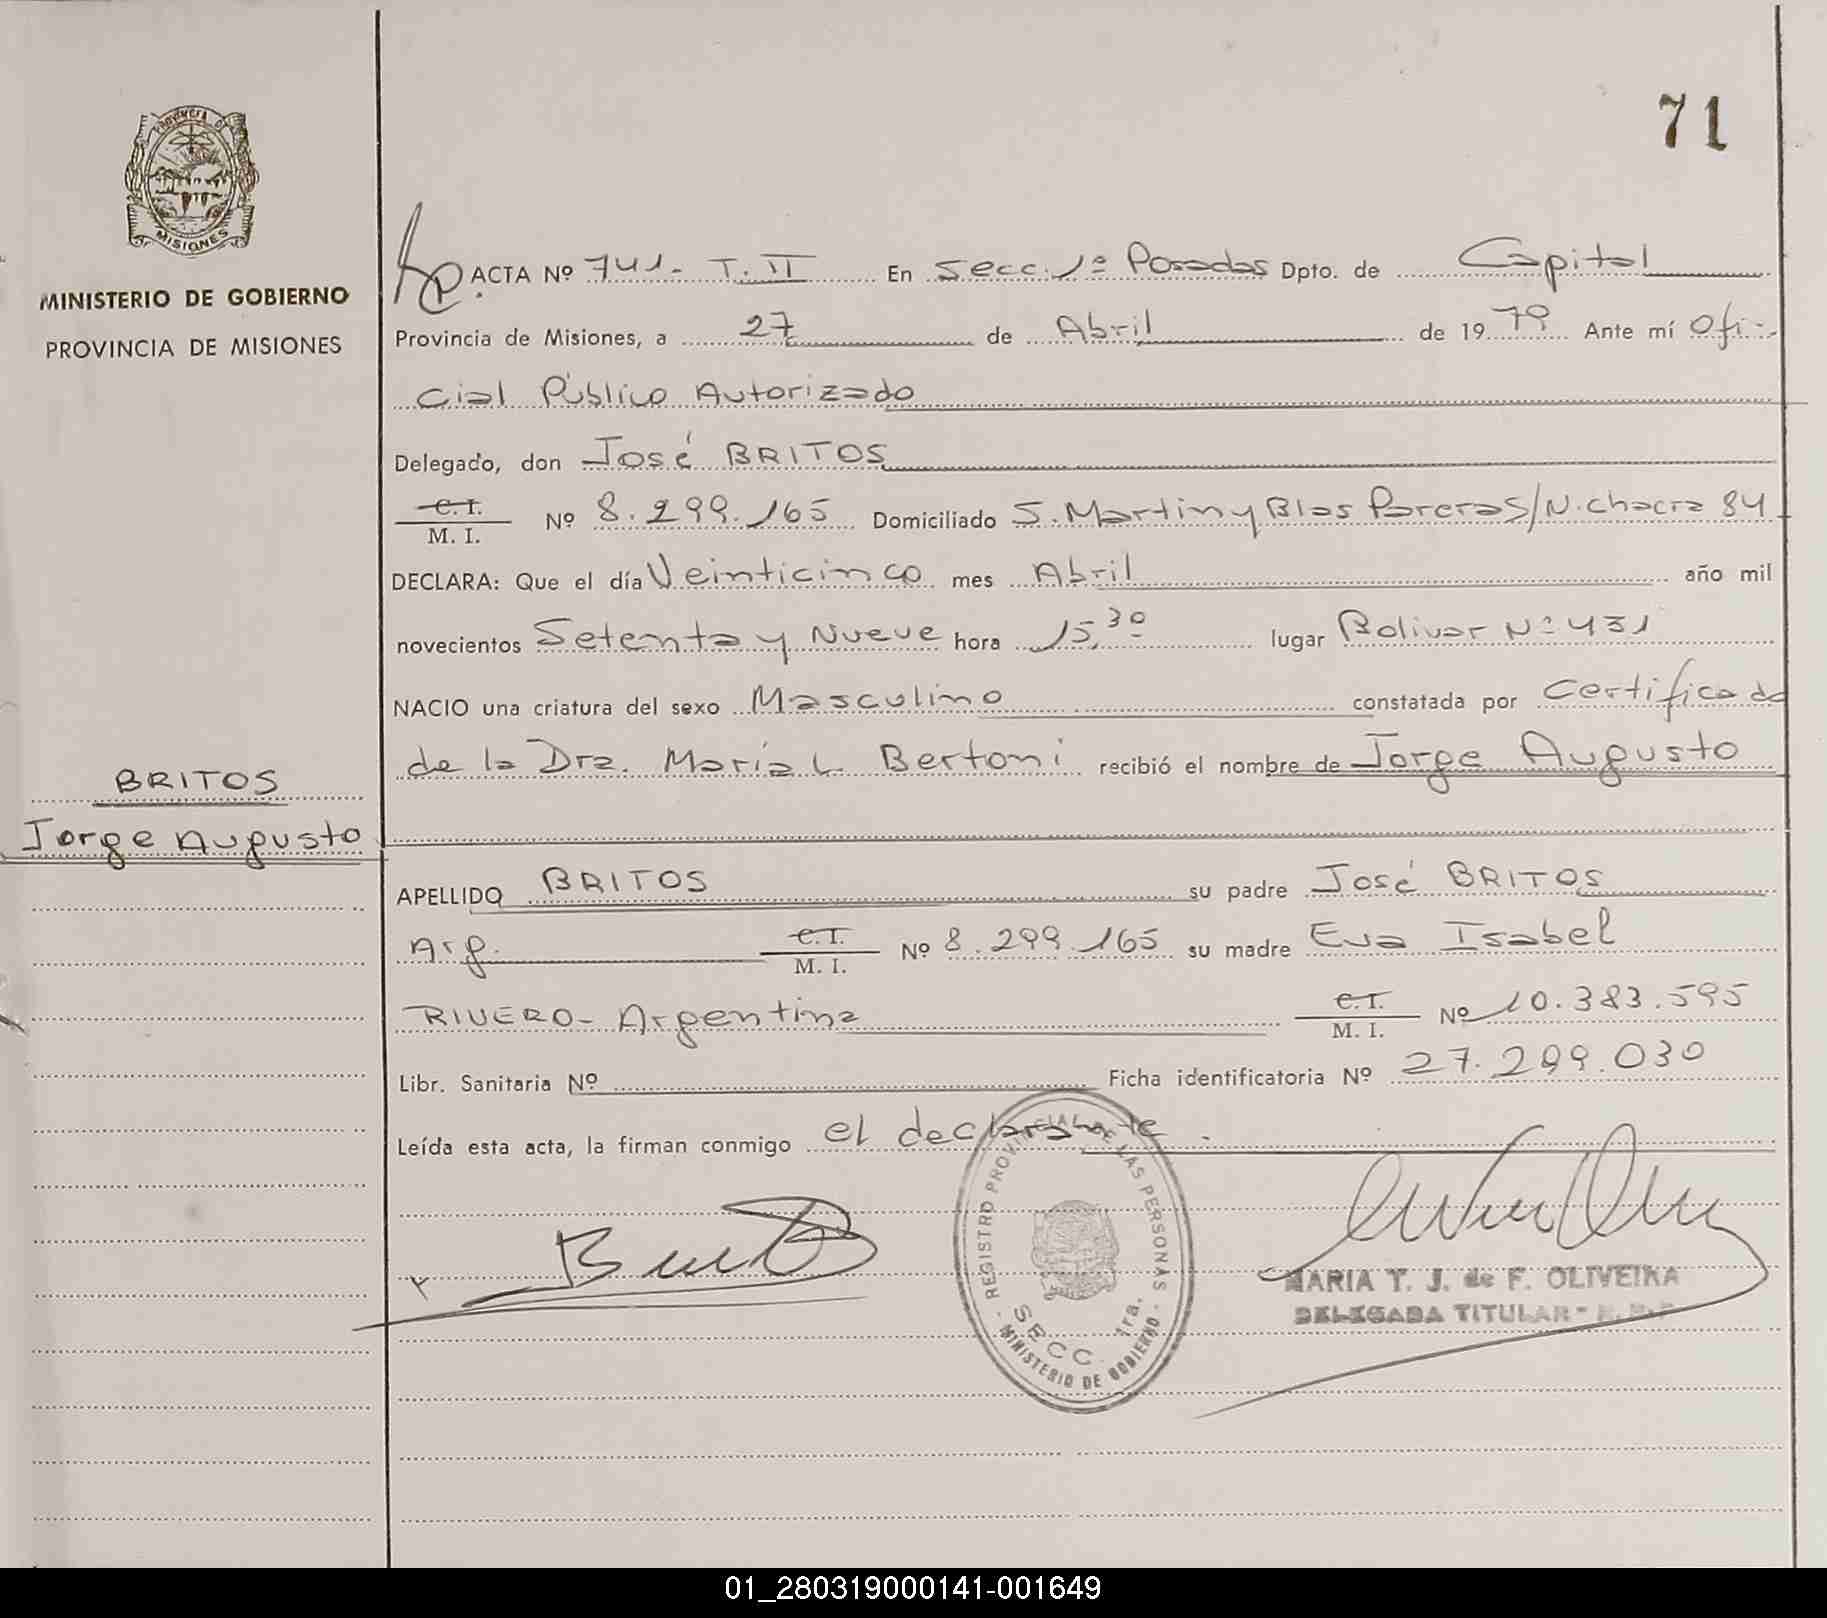 71
PROVINCIA DE
MISIONES
MINISTERIO DE GOBIERNO
PROVINCIA DE MISIONES
ACTA Nº 741- T. II En Secc. 1º Posadas Dpto. de Capital
Provincia de Misiones, a 27 de Abril de 1979 Ante mí Ofi-
cial Público Autorizado
Delegado, don José BRITOS
C. I.
M. I. Nº 8.299.165 Domiciliado S. Martin y Blas Parera S/N. chacra 84
DECLARA: Que el día Veinticinco mes Abril año mil
novecientos Setenta y Nueve hora 15,30 lugar Bolivar Nº 431
NACIO una criatura del sexo Masculino constatada por Certificado
de la Dra. Maria L. Bertoni recibió el nombre de Jorge Augusto
BRITOS
Jorge Augusto
APELLIDO BRITOS su padre José BRITOS
Arg. C. I. M. I. Nº 8.299.165 su madre Eva Isabel
RIVERO- Argentina C. I. M. I. Nº 10.383.595
Libr. Sanitaria Nº Ficha identificatoria Nº 27.299.030
Leída esta acta, la firman conmigo el declarante.
REGISTRO PROVINCIAL DE LAS PERSONAS
SECC. 1ra.
MINISTERIO DE GOBIERNO
MARIA T. J. de F. OLIVEIRA
DELEGADA TITULAR
01_280319000141-001649